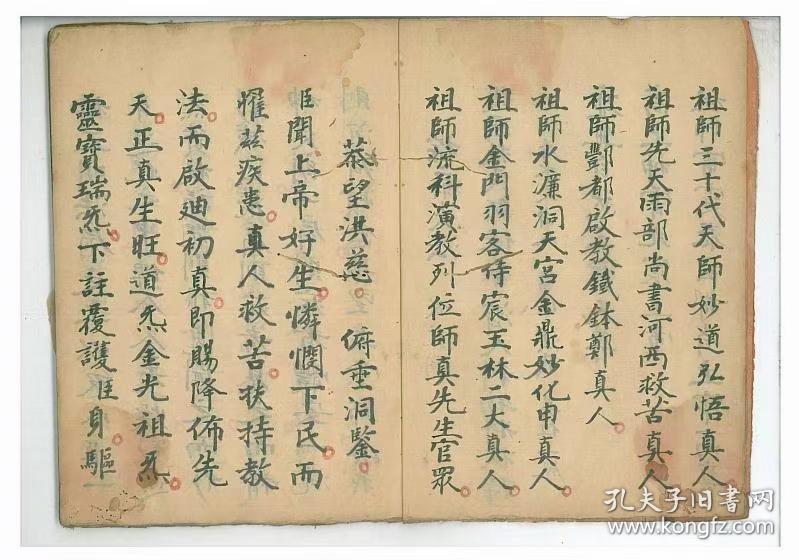 祖師三十代天師妙道弘悟真人
祖師先天雨部尚書河西救苦真人
祖師酆都啟教鐵鉢鄭真人。
祖師水濂洞天宮金鼎妙化申真人。
祖師金門羽客侍宸王林二大真人
祖師流科演教列位師真先生官眾
恭望洪慈。俯垂洞鑒。
臣聞上帝好生。憐憫下民。而
罹茲疾患。真人救苦。扶持教
法。而啟迪初真即賜降佈先
天。正真生旺。道炁金光祖炁。
靈寶瑞炁。下註覆護臣身。驅
孔夫子旧书网
www.kongfz.com